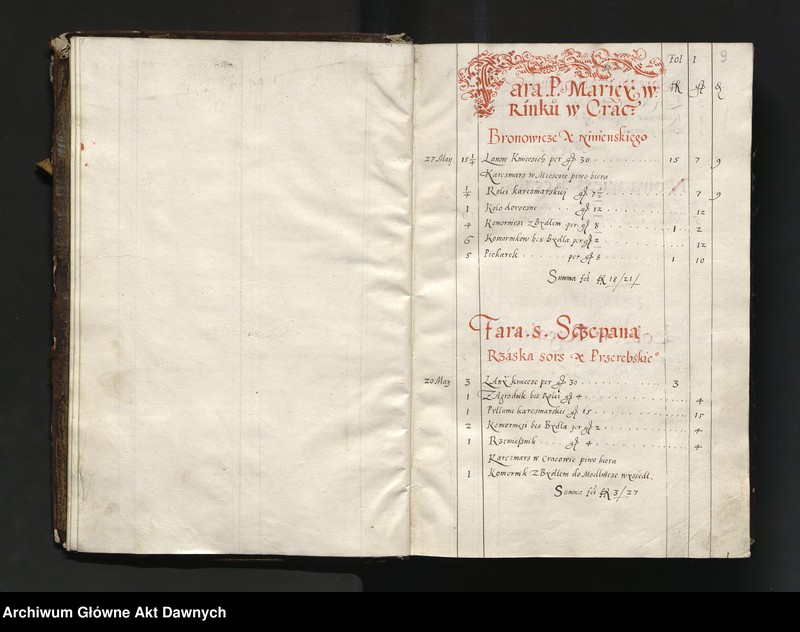 Fol 1 9
ƒℓ gr ₰
Fara P. Mariey w
Rinku w Crac:
Bronowicze X. Ninienskiego
27 May 15 1/4 Lanow Kmiecich per gr 30 15 7 9
Karczmarz w Miescie piwo biera
1/4 Rolei karczmarskiej gr 7 1/2 7 9
1 Kolo doroczne gr 12 12
4 Komornesi z Bydlem per gr 8 1 2
6 Komornikow bes Bydla per gr 2 12
5 Piekarek per gr 8 1 10
Summa fel 18/21/
Fara. S. Sczepana
Rzaska sors X Przerebskie°
20 May 3 Lany kmiecze per gr 30 3
1 Zagrodnik bes Rolei gr 4 4
1 Pullane karczmarskie gr 15 15
2 Komornesi bes Bydla per gr 2 4
1 Rzemeßnik gr 4 4
Karczmarz w Cracowie piwo biera
1 Komornik z Bydlem do Modlnicze wyßedl.
Summa fel 3/27
Archiwum Główne Akt Dawnych